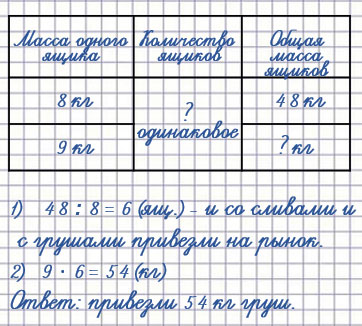 Масса одного ящика
Количество ящиков
Общая масса ящиков
8 кг
?
одинаковое
48 кг
9 кг
? кг
1) 48 : 8 = 6 (ящ.) – и со сливами и
с грушами привезли на рынок.
2) 9 · 6 = 54 (кг)
Ответ: привезли 54 кг груш.